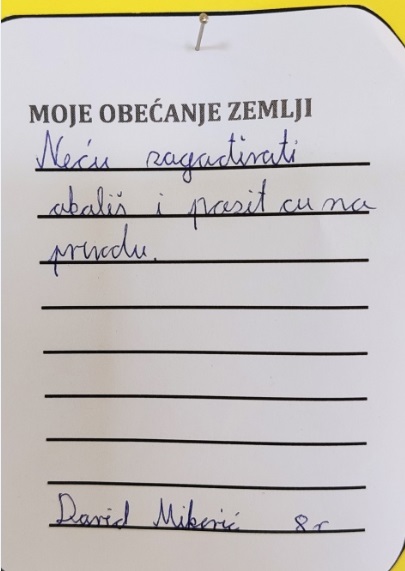 MOJE OBEĆANJE ZEMLJI
Neću zagađivati
okoliš i pazit ću na
prirodu.
David Miković 8r